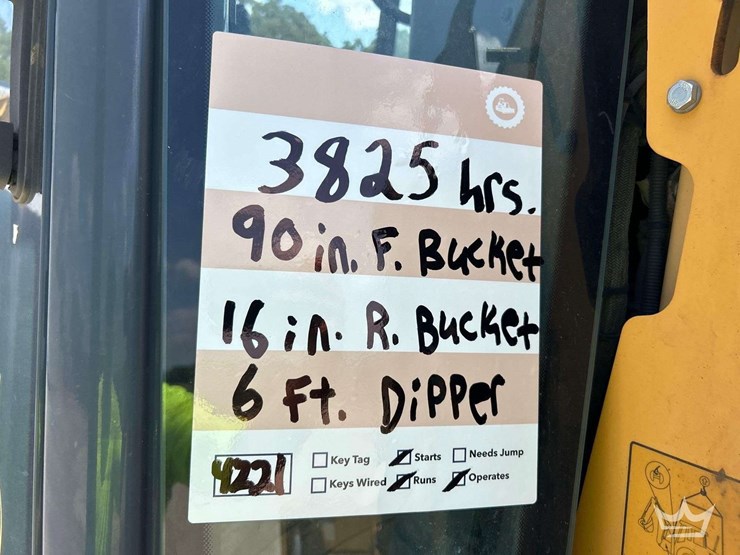 3825 hrs.
90 in. F. Bucket
16 in. R. Bucket
6 Ft. Dipper
4221
Key Tag Starts Needs Jump
Keys Wired Runs Operates